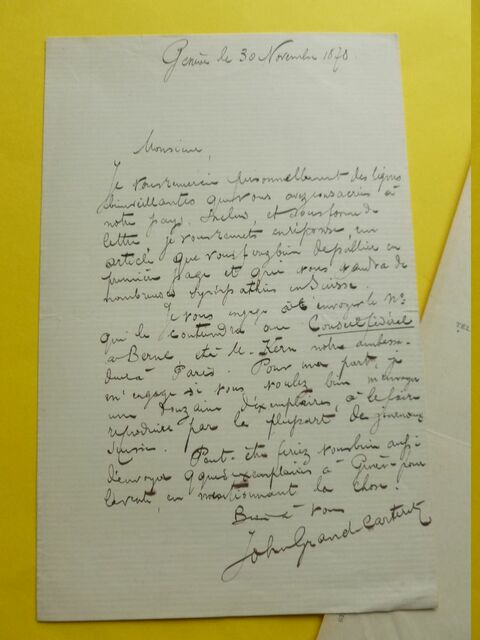 Genève le 30 Novembre 1878.
Monsieur,
Je vous remercie personnellement des lignes
bienveillantes que vous avez consacrées à
notre pays. Inclus, et sous forme de
lettre je vous remets en réponse, un
article que vous ferez bien de publier en
première page et qui vous vaudra de
nombreuses sympathies en Suisse.
Je vous engage à envoyer le No
qui le contiendra au Conseil fédéral
à Berne et à M. Kern notre ambassa-
deur à Paris. Pour ma part, je
m'engage si vous voulez bien m'envoyer
une douzaine d'exemplaires, à le faire
reproduire par la plupart de journaux
Suisses.
Peut-être feriez vous bien aussi
d'envoyer qques exemplaires à Genève pour
la vente, en mentionnant la chose.
Bien à vous
John Grand-Carteret